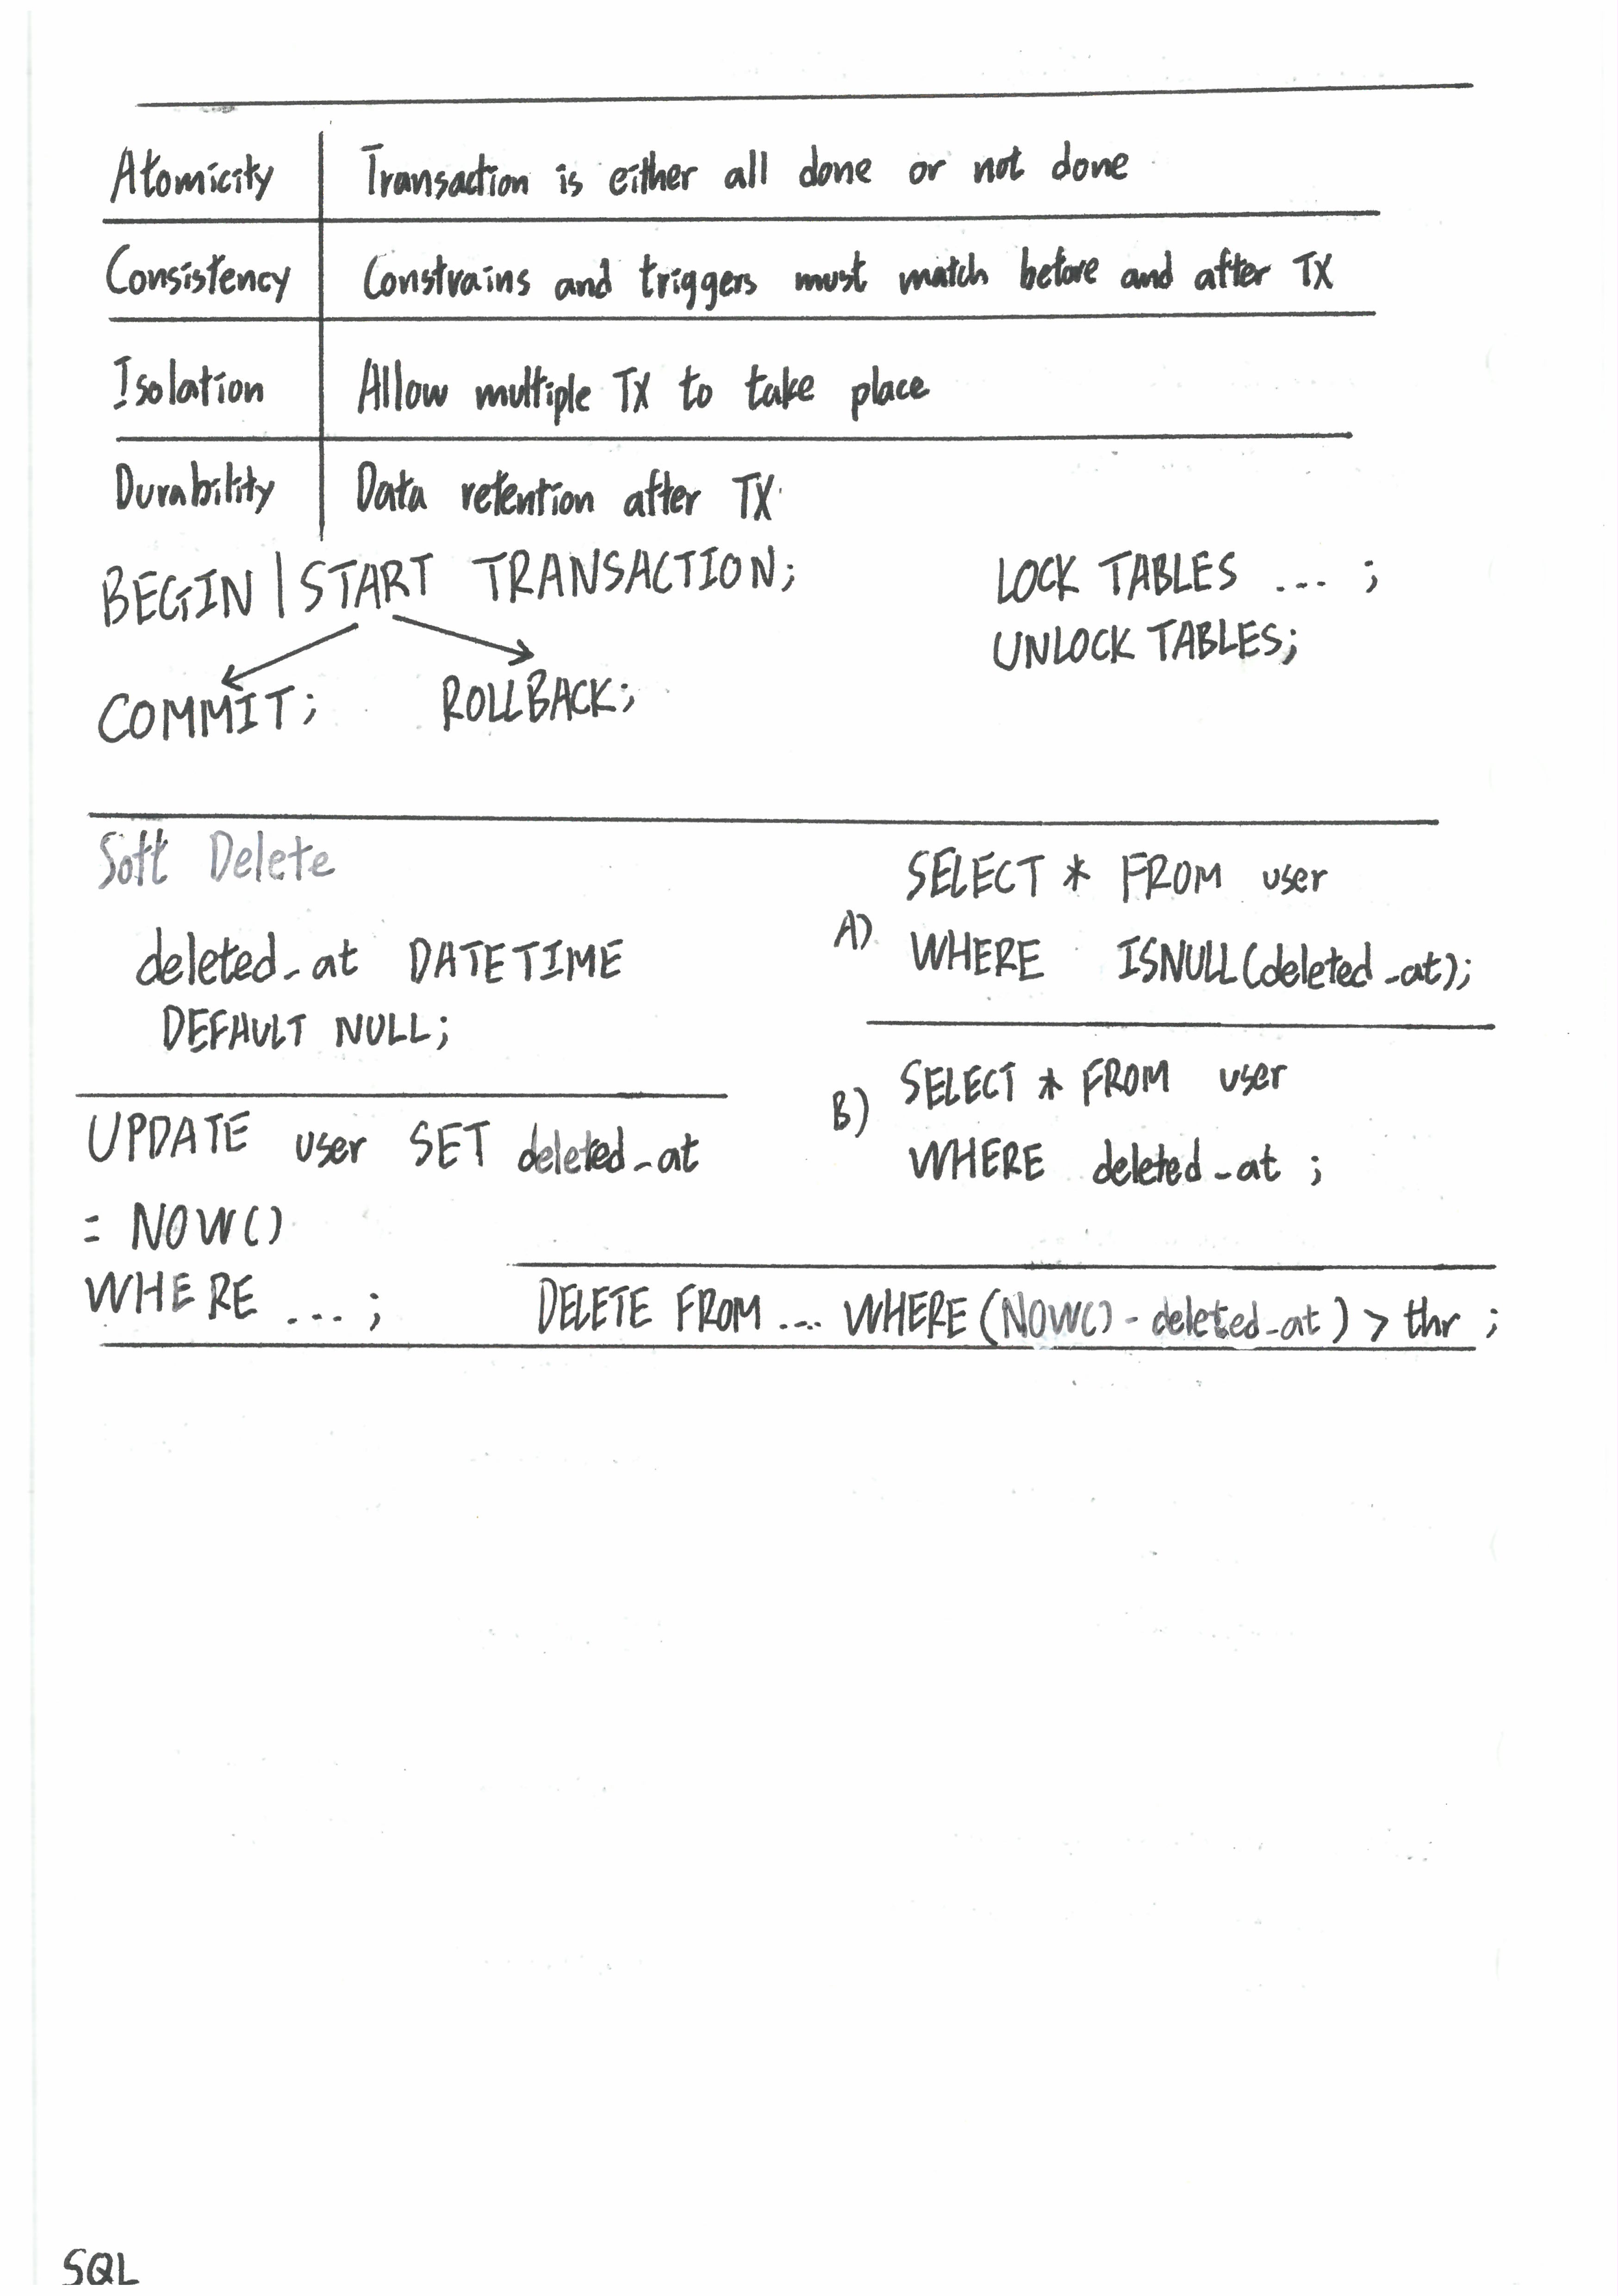 Atomicity | Transaction is either all done or not done
Consistency | Constrains and triggers must match before and after TX
Isolation | Allow multiple TX to take place
Durability | Data retention after TX
BEGIN | START TRANSACTION;
COMMIT; ROLLBACK;
LOCK TABLES ... ;
UNLOCK TABLES;
Soft Delete
deleted_at DATETIME
DEFAULT NULL;
UPDATE user SET deleted_at
= NOW()
WHERE ... ;
A) SELECT * FROM user
WHERE ISNULL(deleted_at);
B) SELECT * FROM user
WHERE deleted_at ;
DELETE FROM ... WHERE (NOW() - deleted_at) > thr ;
SQL